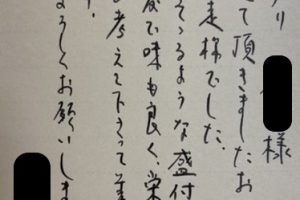 様
て頂きましたお
走様でした。
そゝるような盛付
度で味も良く、栄
考えて下さって美
ろしくお願いしま